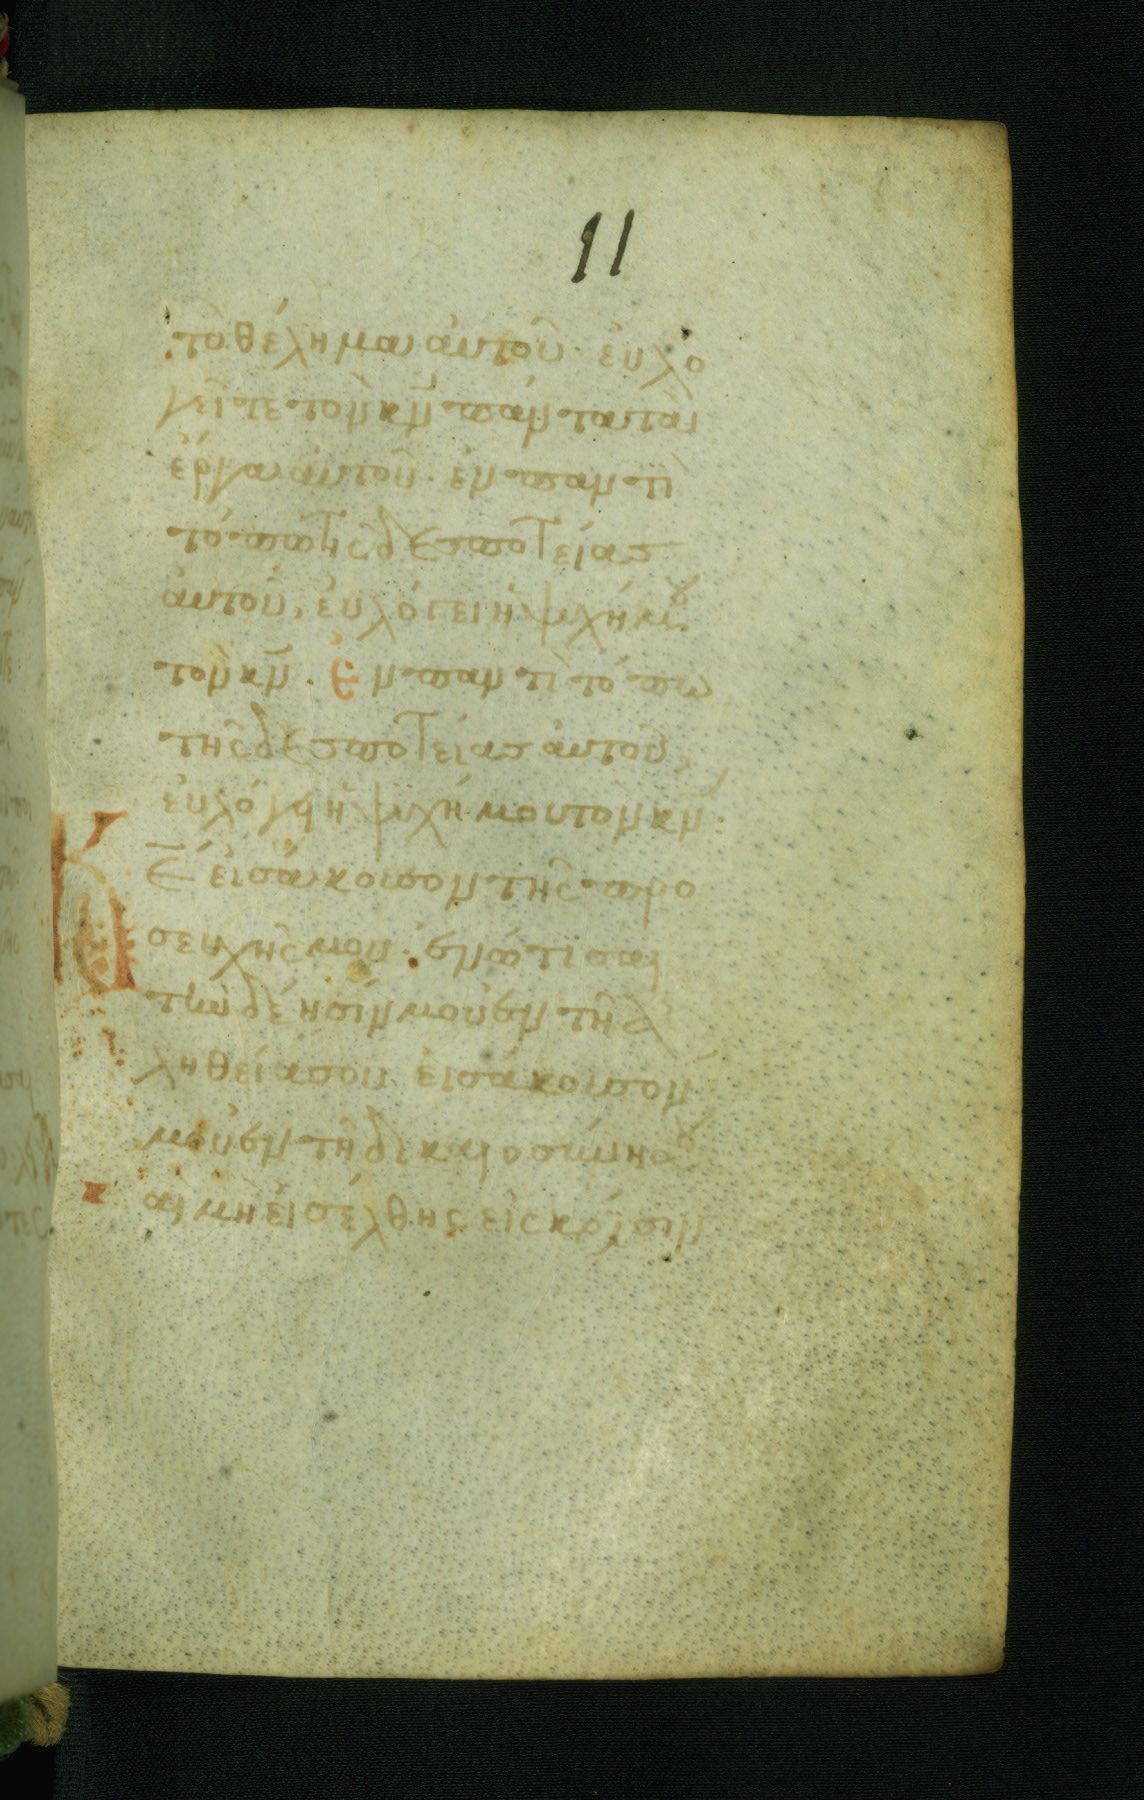 11
τὸ θέλημα αὐτοῦ· εὐλο
γεῖτε τὸν κν̄ πάντα τὰ
ἔργα αὐτοῦ· ἐν παντὶ
τόπω τῆς δεσποτείας
αὐτοῦ, εὐλόγει ἡ ψυχή μου
τὸν κν̄. Ἐν παντὶ τόπω
τῆς δεσποτείας αὐτοῦ,
εὐλόγει ἡ ψυχή μου τὸν κν̄.
Κε̄ εἰσάκουσον τῆς προ
σευχῆς μου· ἐνώτισαι
τὴν δέησίν μου ἐν τῆ ἀ
ληθεία σου εἰσάκουσόν
μου ἐν τῆ δικαιοσύνη σου
καὶ μὴ εἰσέλθης εἰς κρίσιν